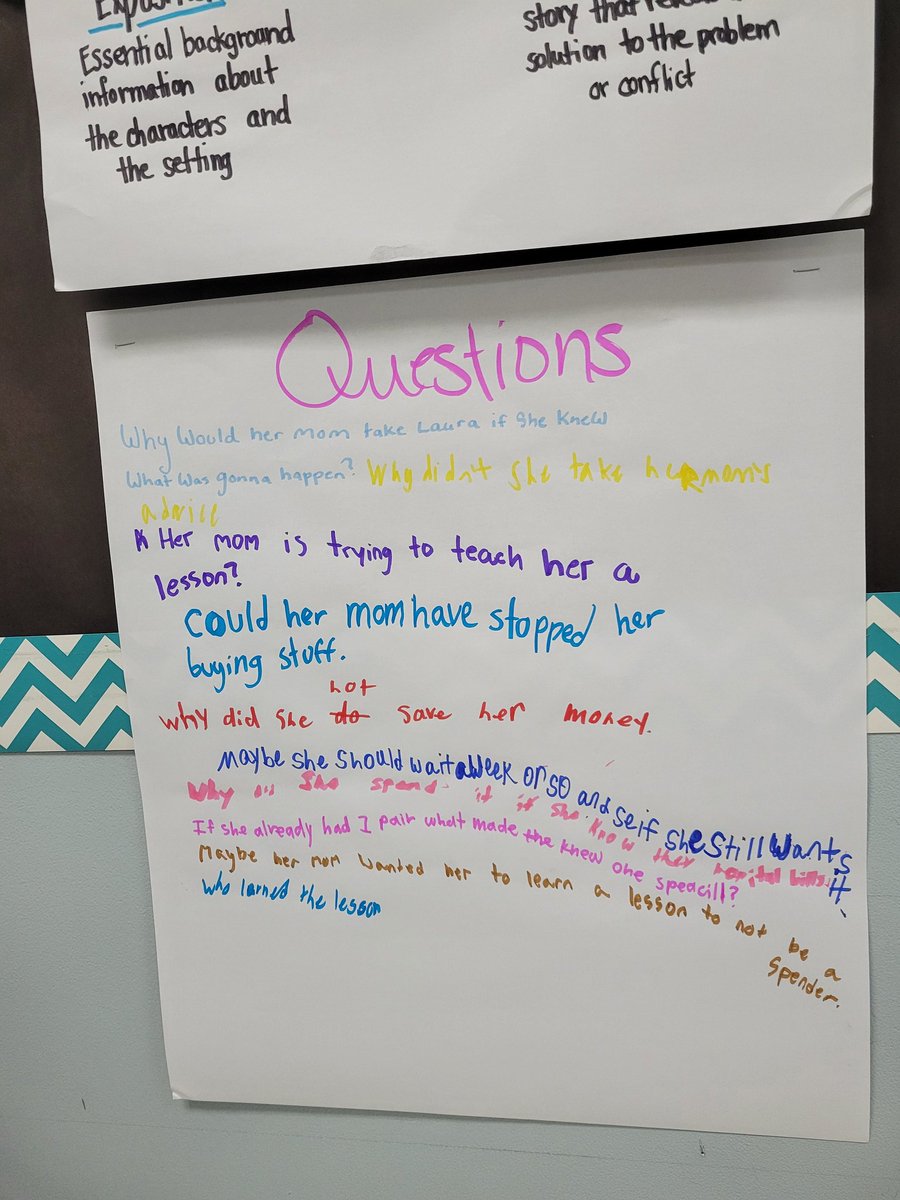 Essential background
information about
the characters and
the setting
story that
solution to the problem
or conflict
Questions
Why Would her mom take Laura if She Knew
What was gonna happen? Why didn't she take her mom's
advice
Her mom is trying to teach her a
lesson?
Could her mom have stopped her
buying stuff.
not
why did she do save her money.
Maybe she should wait a week or so and se if she still wants it.
Why she spend it if she know they hospital bills
If she already had 1 pair what made the knew one speacill?
Maybe her mom wanted her to learn a lesson to not be a
spender.
who larned the lesson